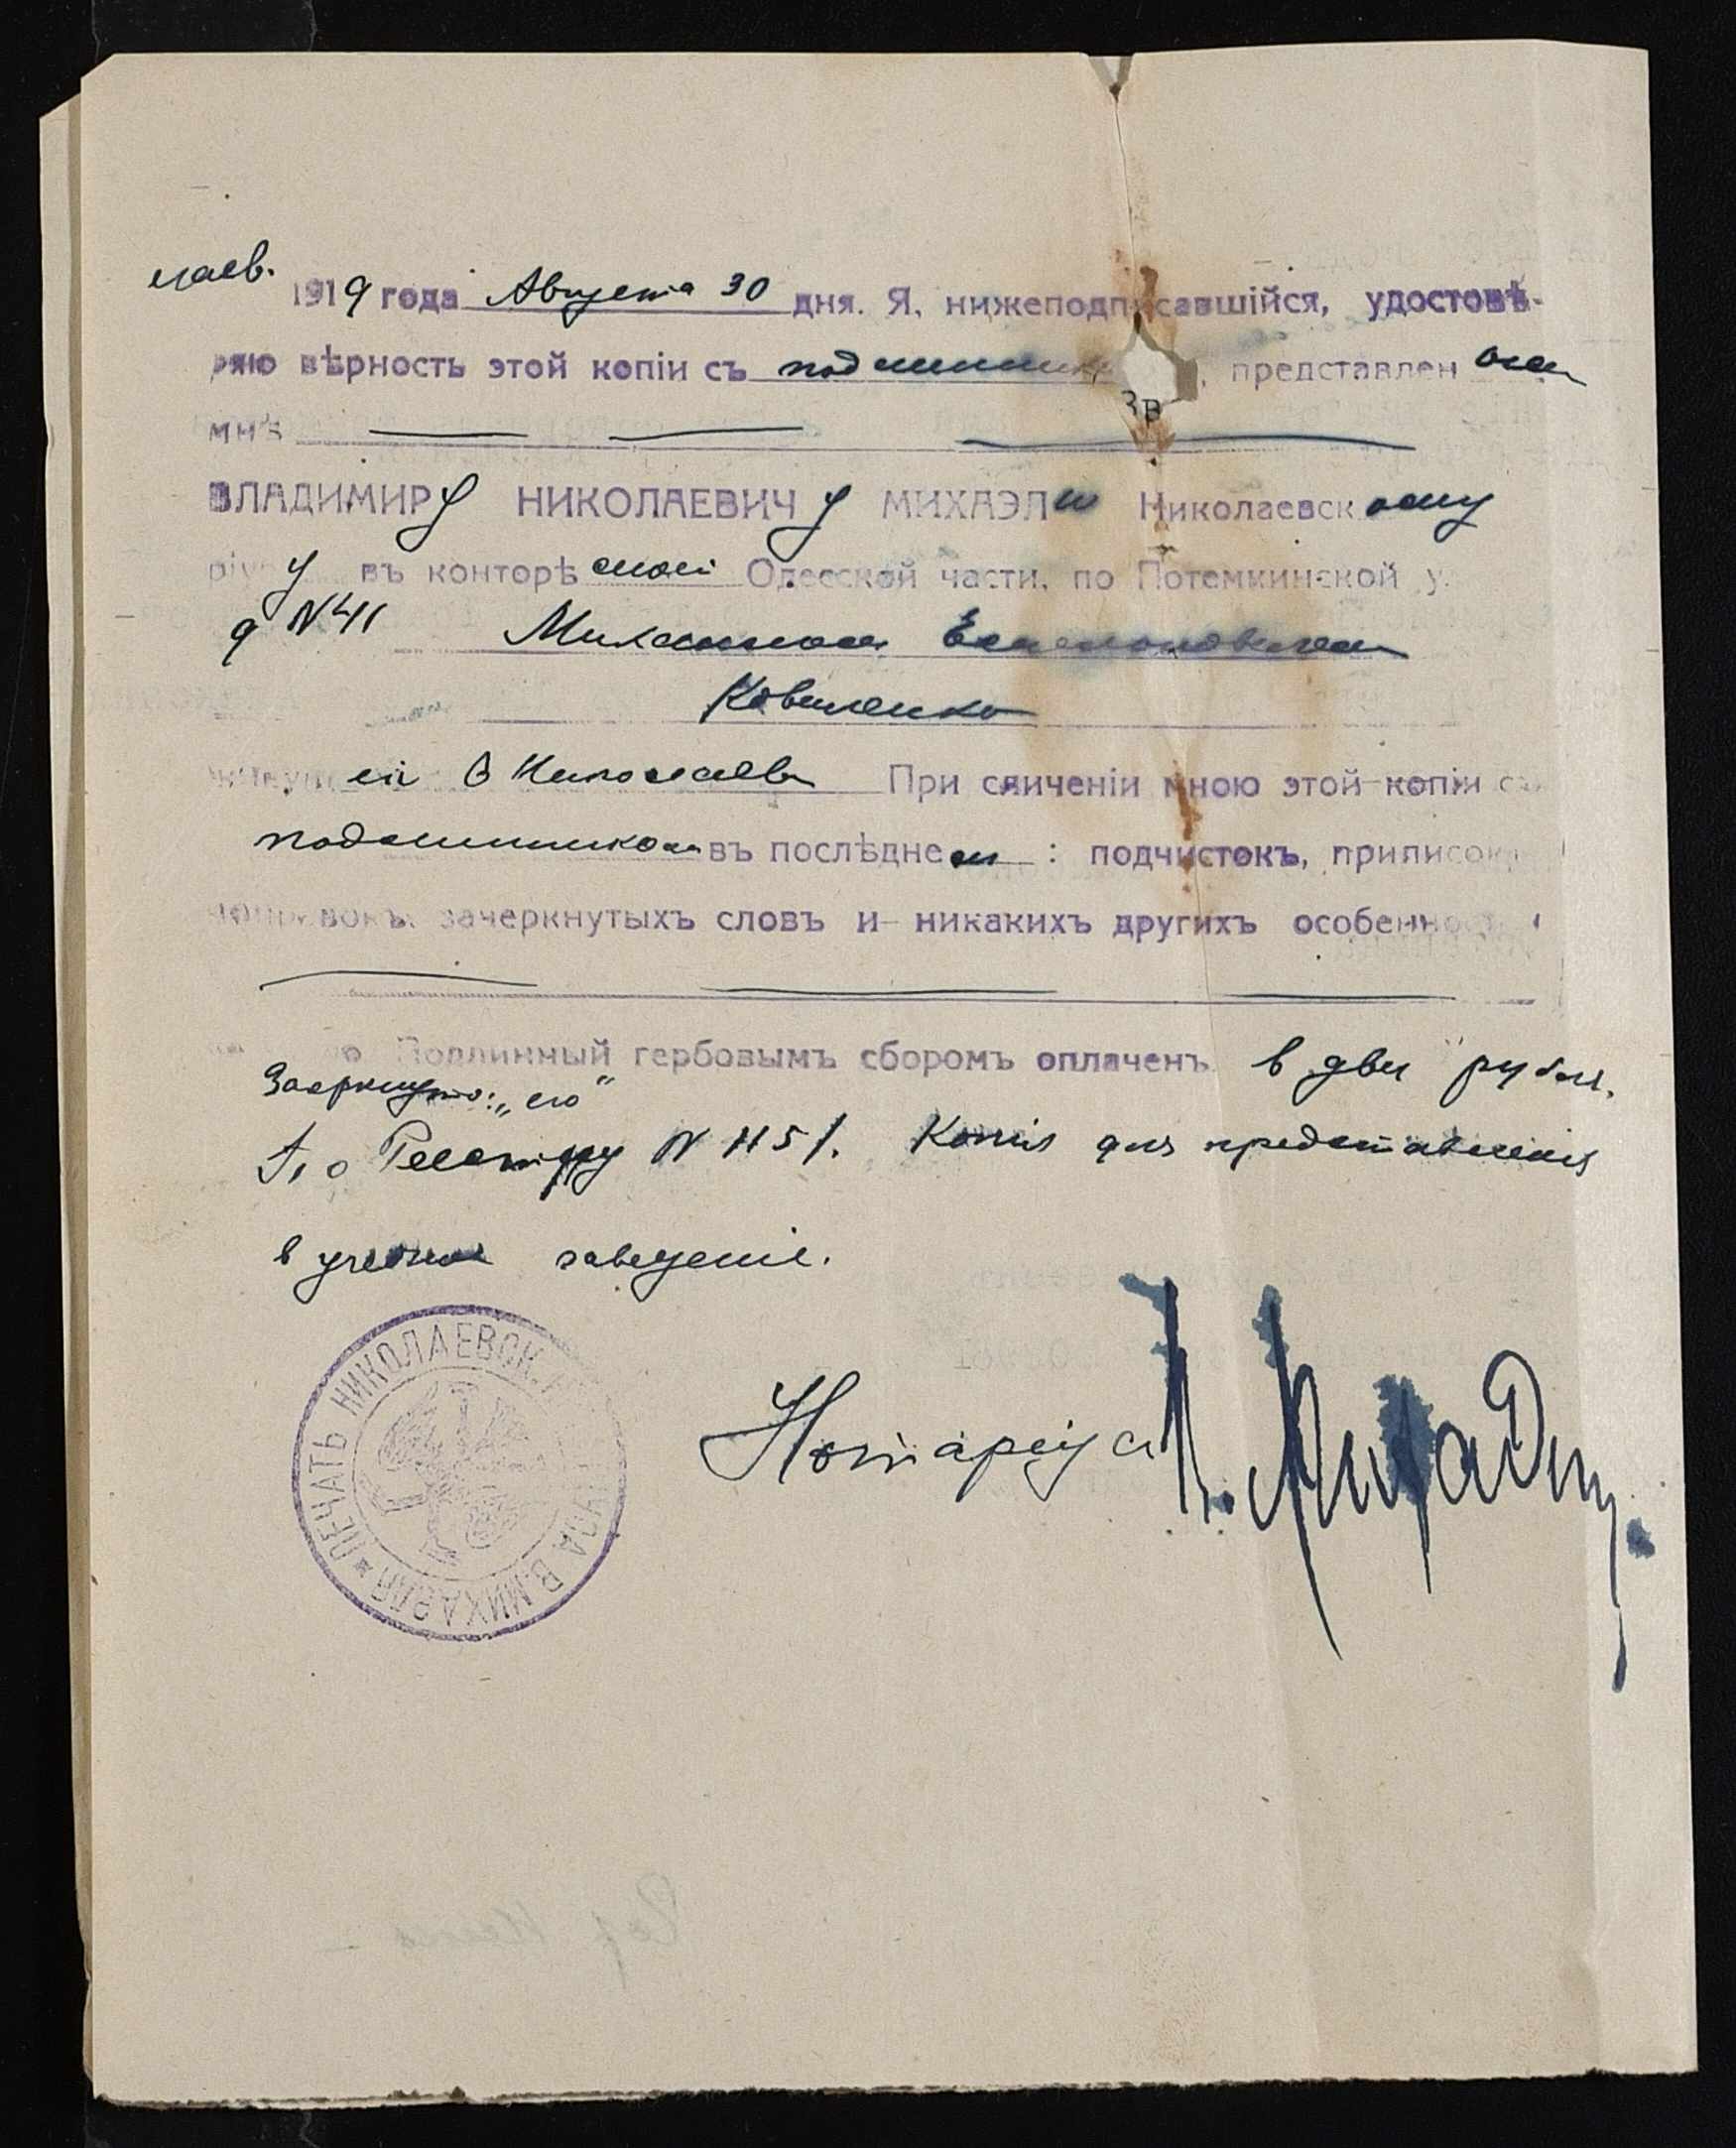 1919 года Августа 30 дня. Я, нижеподписавшійся, удостовѣ-
ряю вѣрность этой копіи съ подлинник , представлен
Зв
мнѣ
ВЛАДИМИРу НИКОЛАЕВИЧу МИХАЭЛИ Николаевскому
у въ конторѣ моей Одесской части, по Потемкинской у
д N 41 Михаилом
Коваленко
В Николаеве При сличеніи мною этой копіи съ
подлинником въ послѣднем : подчистокъ, приписокъ
зачеркнутыхъ словъ и никакихъ другихъ особенност
Подлинный гербовымъ сборомъ оплаченъ в два рубля.
Зачеркнуто: „его"
По Реестру N 1151. Копія для представленія
в учебное заведеніе.
Нотаріус
ПЕЧАТЬ НИКОЛАЕВСК. В. МИХАЭЛИ